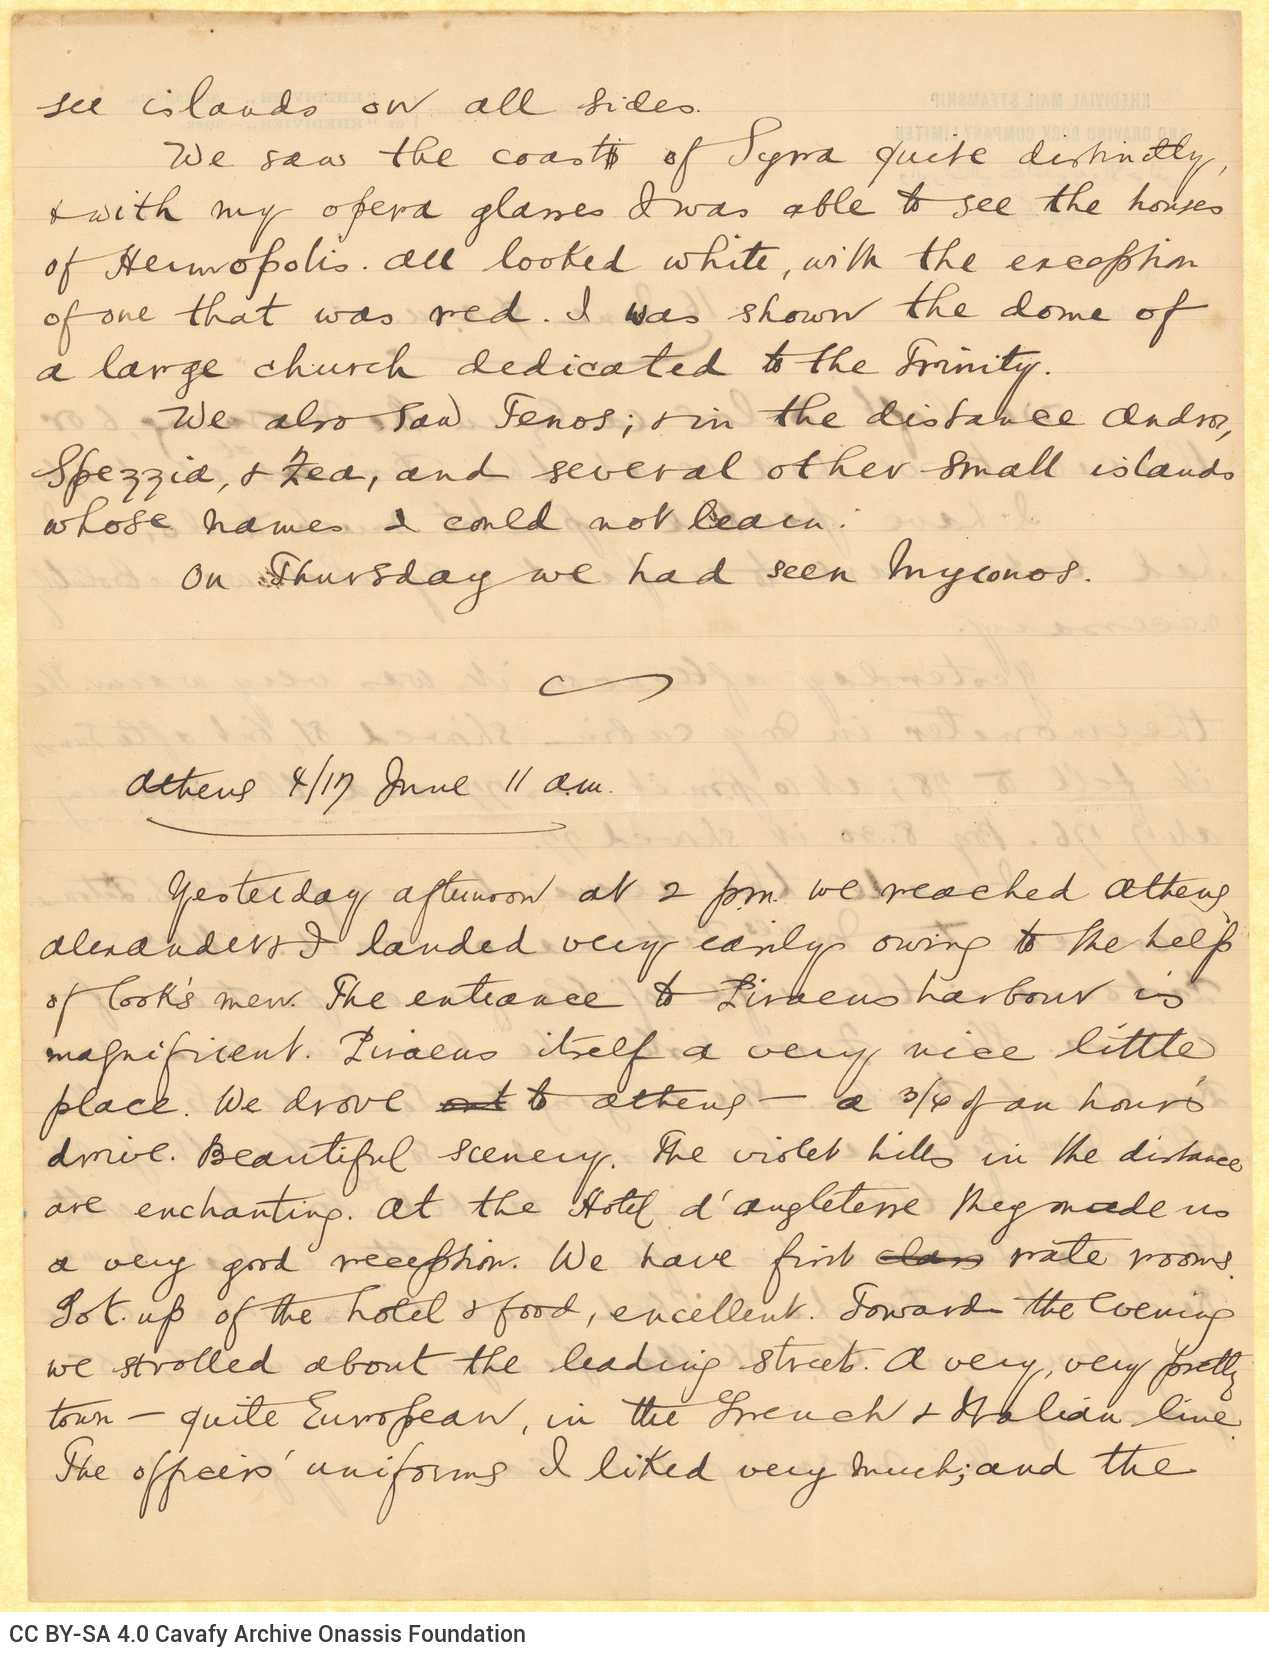 see islands on all sides.
We saw the coast of Syra quite distinctly,
& with my opera glasses I was able to see the houses
of Hermopolis. All looked white, with the exception
of one that was red. I was shown the dome of
a large church dedicated to the Trinity.
We also saw Tenos; & in the distance Andros,
Spezzia, & Zea, and several other small islands
whose names I could not learn.
On Thursday we had seen Myconos.
Athens 4/17 June 11 a.m.
Yesterday afternoon at 2 p.m. we reached Athens
Alexander & I landed very easily owing to the help
of Cook's men. The entrance to Piraeus harbour is
magnificent. Piraeus itself a very nice little
place. We drove out to Athens — a 3/4 of an hour's
drive. Beautiful scenery. The violet hills in the distance
are enchanting. At the Hotel d'Angleterre they made us
a very good reception. We have first class rate rooms.
Got. up of the hotel & food, excellent. Towards the Evening
we strolled about the leading street. A very, very pretty
town — quite European, in the French & Italian line.
The officers' uniforms I liked very much; and the
CC BY-SA 4.0 Cavafy Archive Onassis Foundation